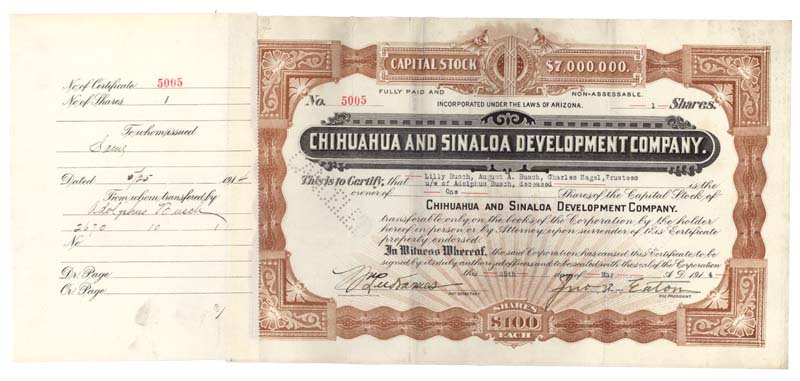 No of Certificate 5005
No of Shares 1
To whom issued
Same
Dated 5/25 1914
From whom transferred by
Adolphus Busch
2670 10 1
No
Dr Page
Cr Page
CAPITAL STOCK $7,000,000.
FULLY PAID AND NON-ASSESSABLE.
No. 5005 INCORPORATED UNDER THE LAWS OF ARIZONA. 1 Shares.
CHIHUAHUA AND SINALOA DEVELOPMENT COMPANY.
This is to Certify, that Lilly Busch, August A. Busch, Charles Nagel, Trustees
u/w of Adolphus Busch, deceased is the
owner of One Shares of the Capital Stock of
CHIHUAHUA AND SINALOA DEVELOPMENT COMPANY.
transferable only on the books of the Corporation, by the holder
hereof in person or by Attorney, upon surrender of this Certificate
properly endorsed.
In Witness Whereof, the said Corporation has caused this Certificate to be
signed by its duly authorized officers and to be sealed with the seal of the Corporation
this 25th day of May A.D. 1914
Jno. Eaton
SECRETARY VICE PRESIDENT.
SHARES
$100
EACH